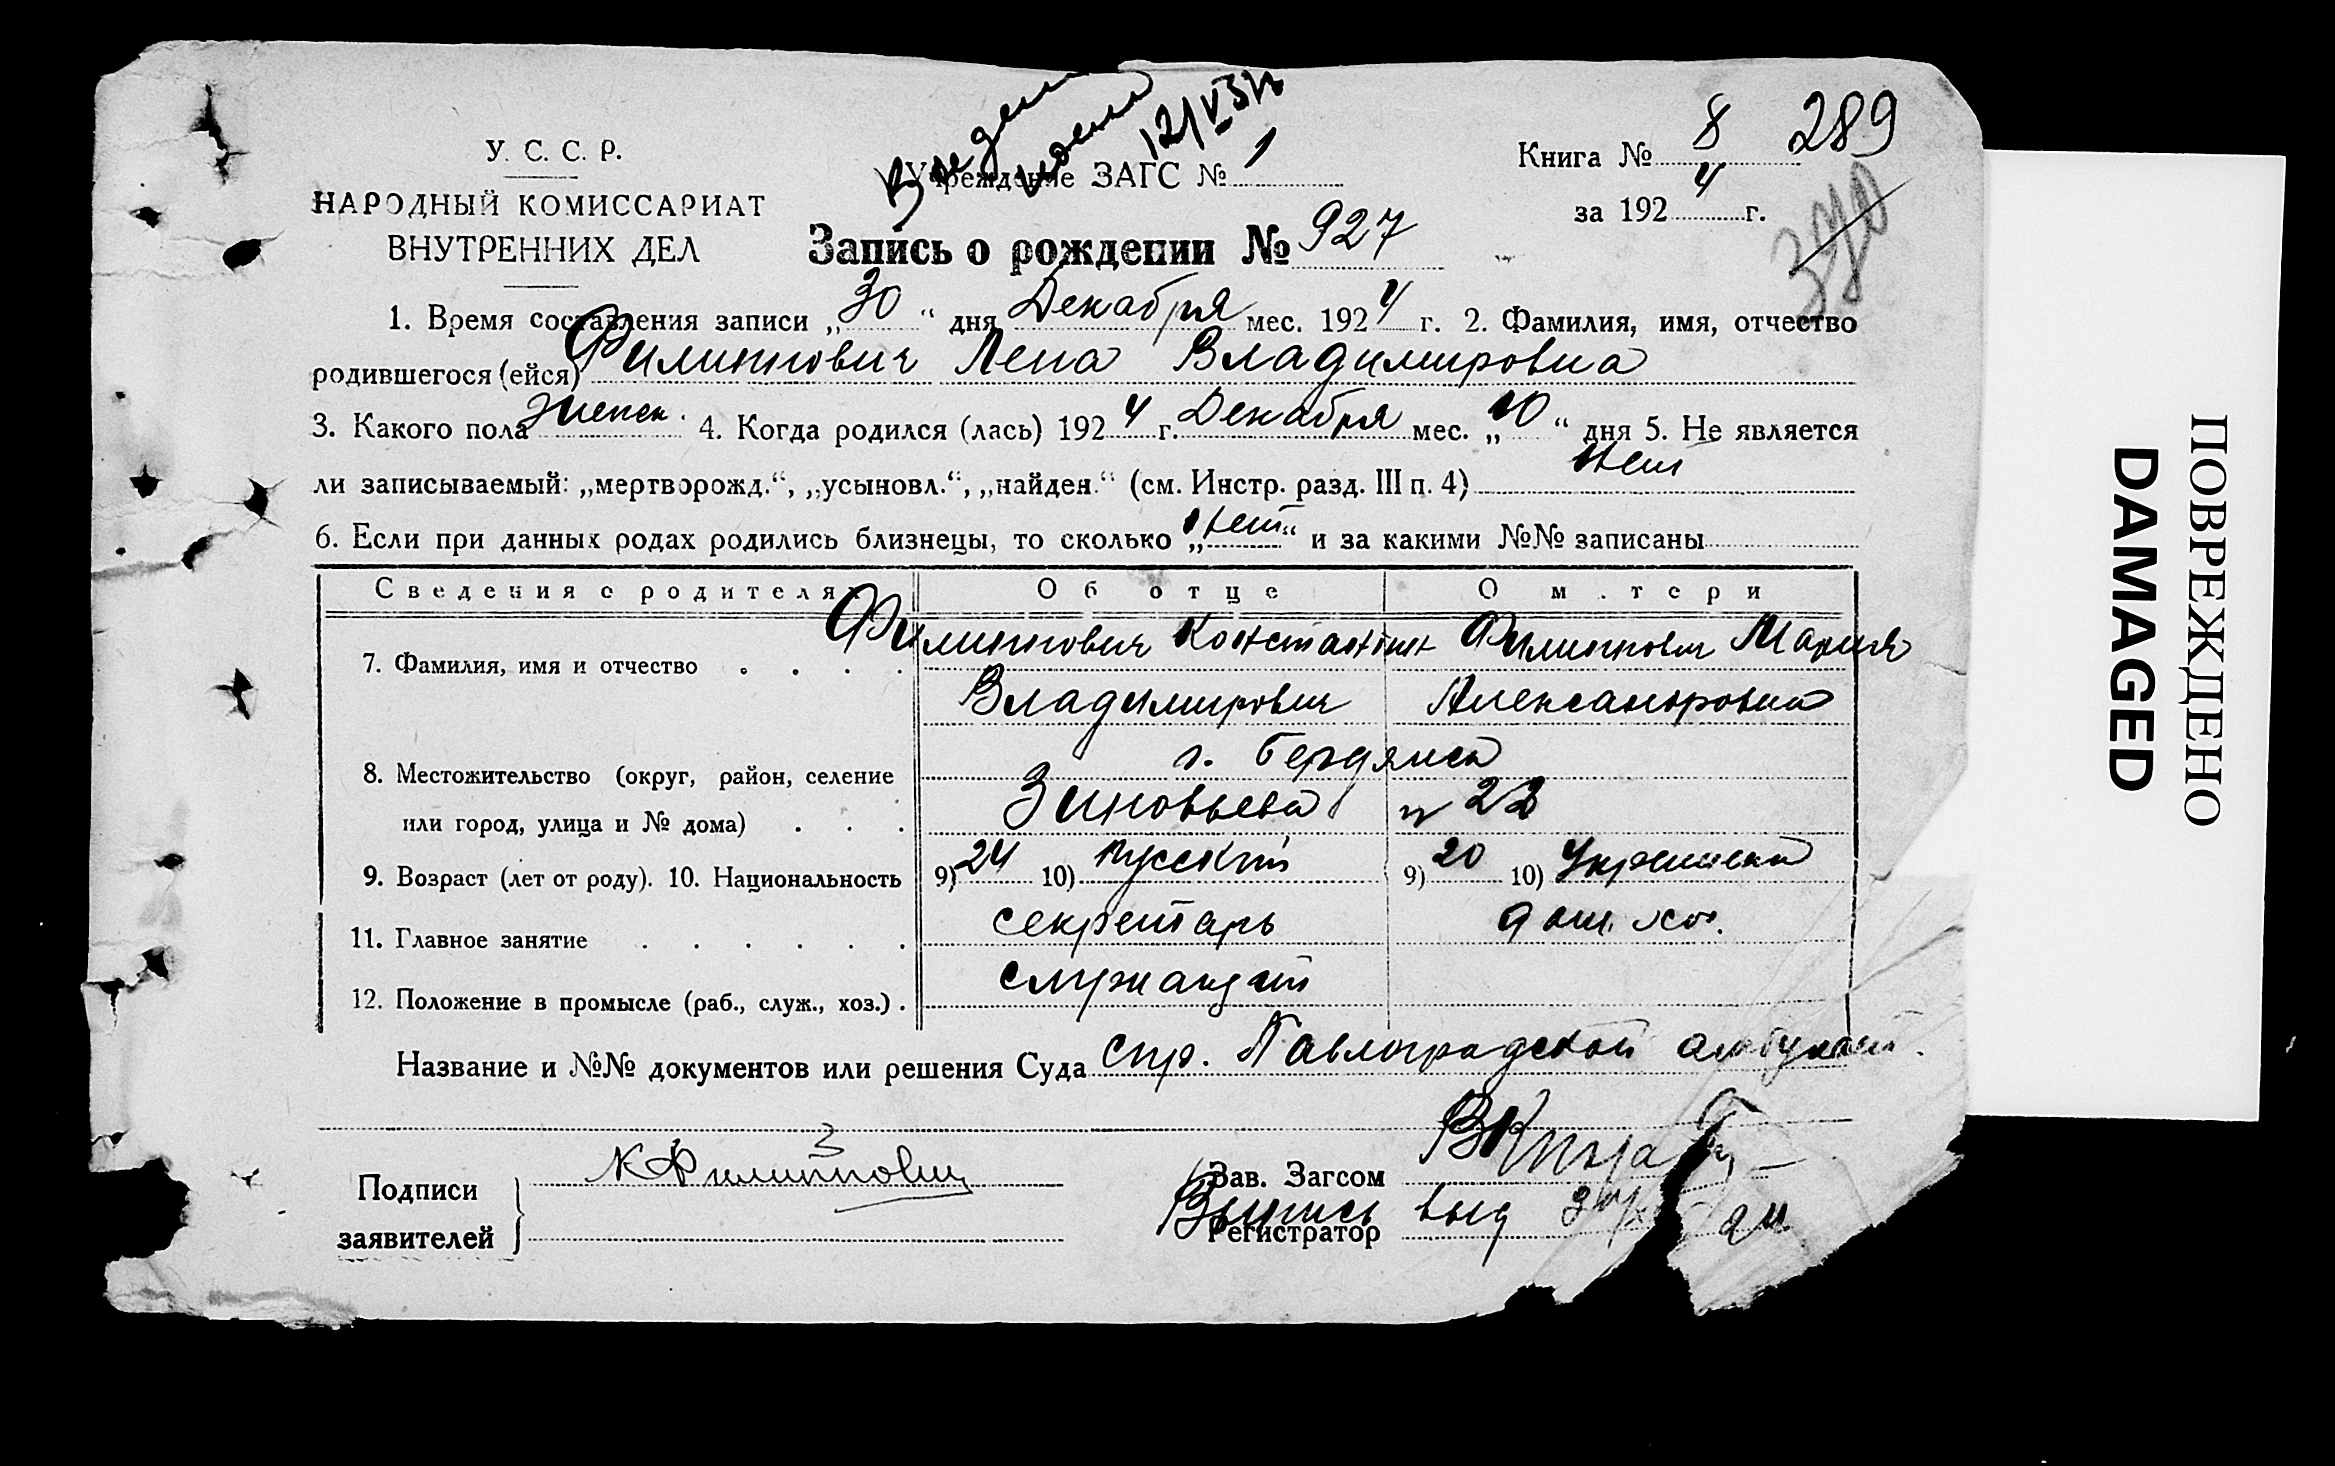 У. С. С. Р.
НАРОДНЫЙ КОМИССАРИАТ
ВНУТРЕННИХ ДЕЛ
12/VI 3
Учреждение ЗАГС № 1
Книга № 8 289
за 1924 г.
370
Запись о рождении № 927
1. Время составления записи „30“ дня Декабря мес. 1924 г. 2. Фамилия, имя, отчество
родившегося (ейся) Филиппович Лена Владимировна
3. Какого пола женск. 4. Когда родился (лась) 1924 г. Декабря мес. „10“ дня 5. Не является
ли записываемый: „мертворожд.“, „усыновл.“, „найден.“ (см. Инстр. разд. III п. 4) нет
6. Если при данных родах родились близнецы, то сколько „нет“ и за какими №№ записаны
Сведения о родителях Об отце О м.тери
7. Фамилия, имя и отчество Филиппович Константин Филиппович Мария
Владимирович Александровна
8. Местожительство (округ, район, селение г. Бердянск
или город, улица и № дома) Зиновьева № 22
9. Возраст (лет от роду). 10. Национальность 9) 24 10) русский 9) 20 10) Украинка
11. Главное занятие секретарь дом. хоз.
12. Положение в промысле (раб., служ., хоз.) служащий
Название и №№ документов или решения Суда спр. Павлоградской
Подписи заявителей К Филиппович
Зав. Загсом
Регистратор
Выпись выд 24
ПОВРЕЖДЕНО
DAMAGED